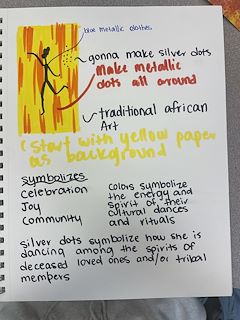 blue metallic clothes
gonna make silver dots
Make metallic
dots all around
traditional african
Art
(start with yellow paper
as background
symbolizes
celebration
Joy
community
colors symbolize
the energy and
spirit of their
cultural dances
and rituals
silver dots symbolize how she is
dancing among the spirits of
deceased loved ones and/or tribal
members